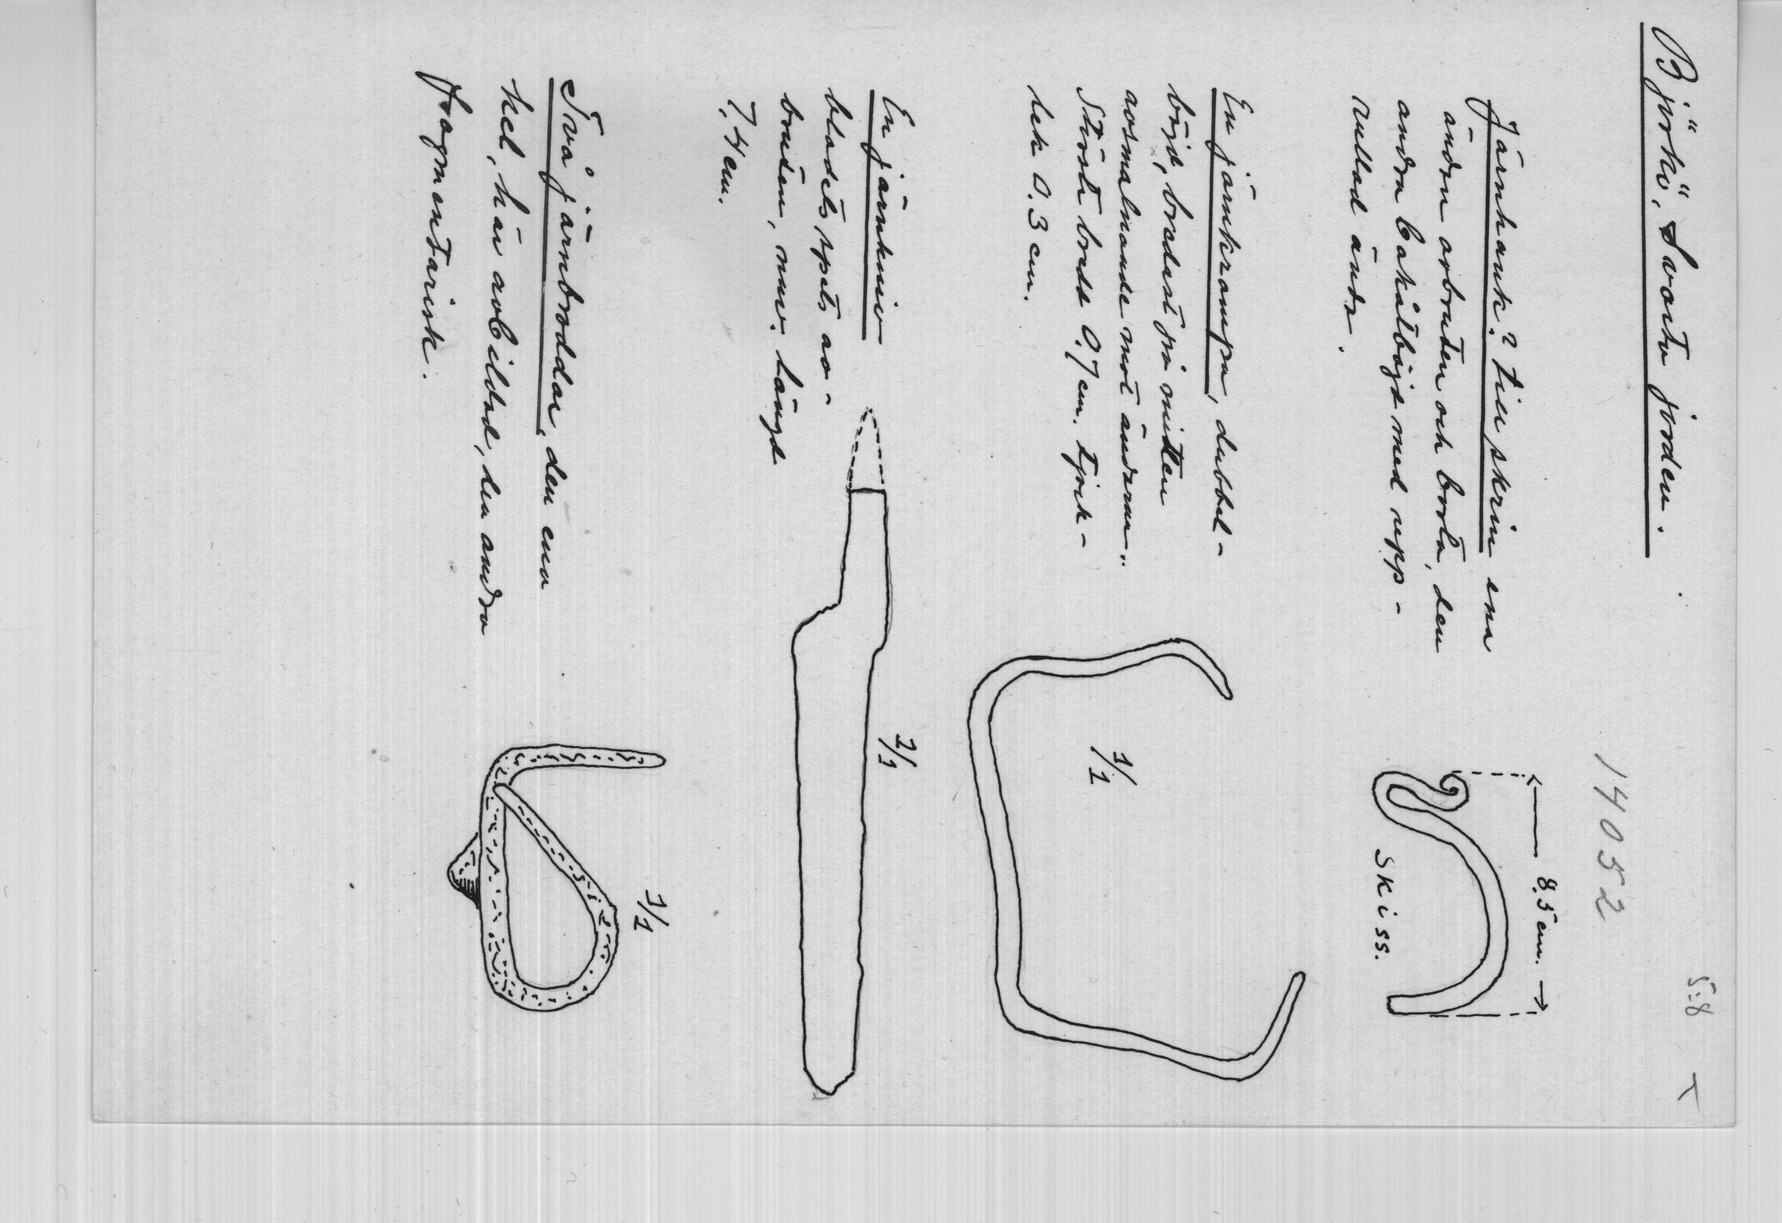 5:8
Björkö, Svarta jorden.
14052
Järnhank? till skrin ena
änden avbruten och borta, den
andra bakåtböjd med upp-
rullad ände.
8.5 cm.
Skiss.
En järnkrampa, dubbel-
böjd, bredast på mitten
avsmalnande mot ändarna.
Största bredd 0.7 cm. tjock-
lek 0.3 cm.
1/1
En järnkniv
bladets spets av-
bruten, nuv. längd
7.4 cm.
1/1
Två järnbroddar, den ena
hel, här avbildad, den andra
fragmentarisk.
1/1